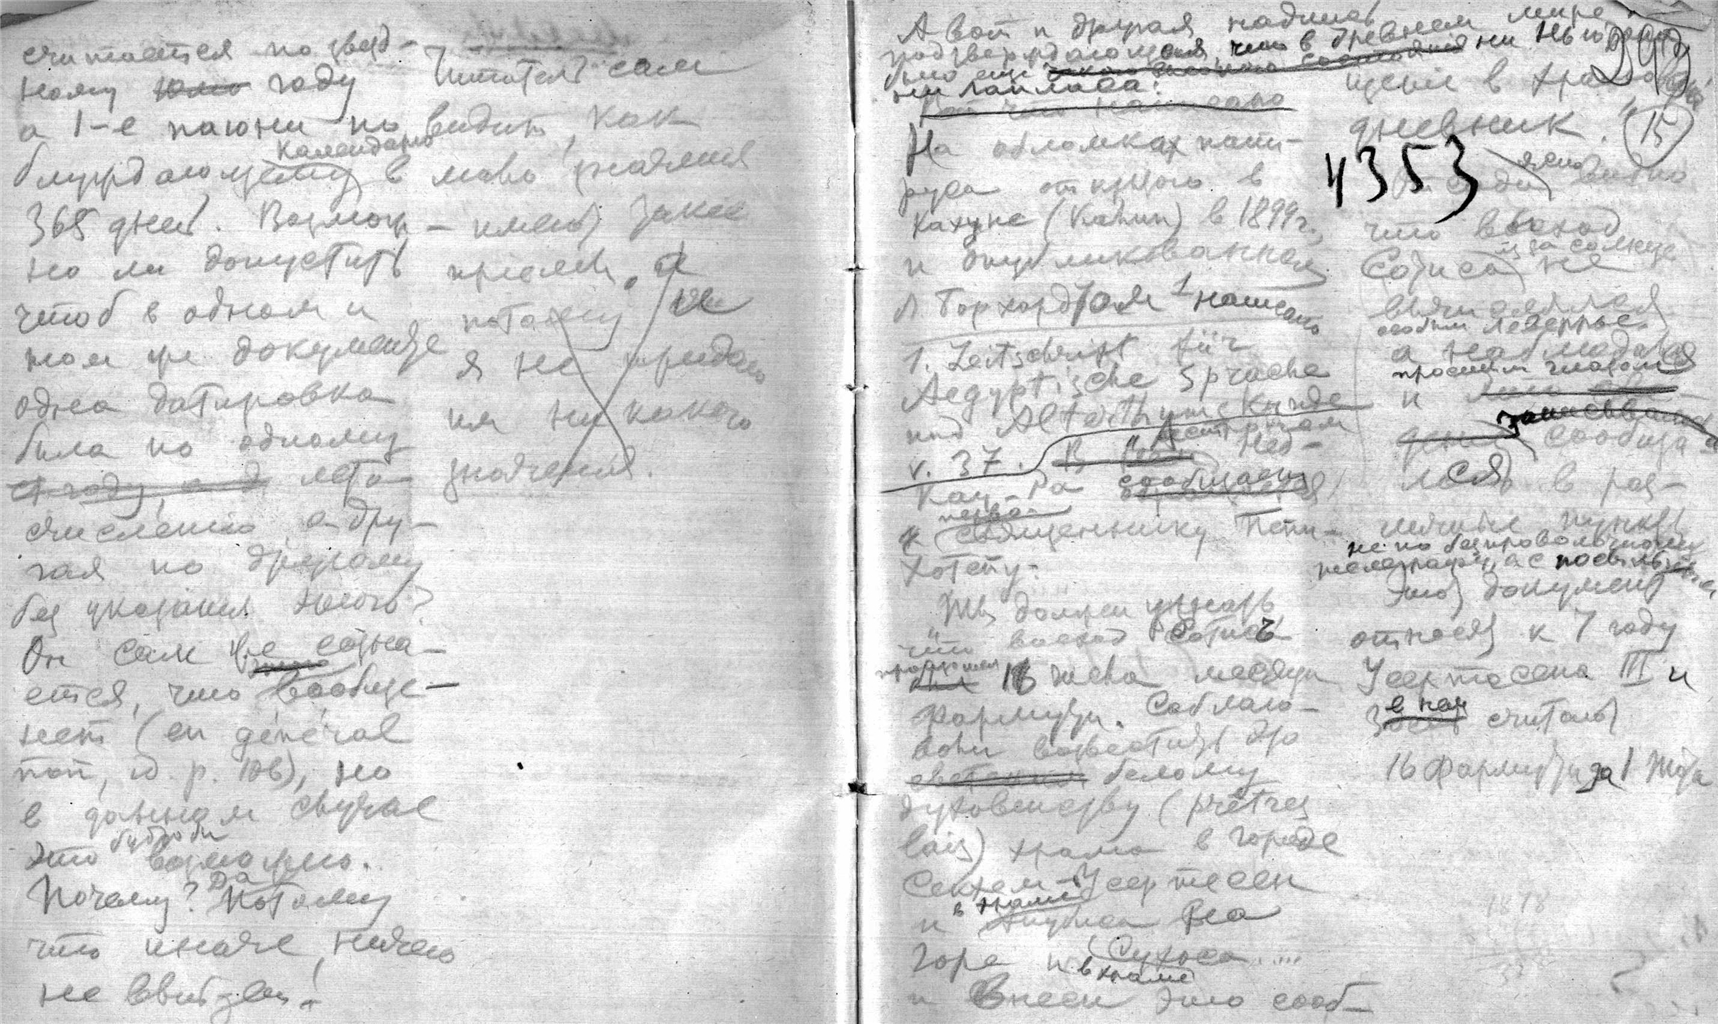 считается по звезд-
ному году
а 1-е паюни по
блуждающему календарю в
365 дней. Возмож-
но ли допустить
чтоб в одном и
том же документе
одна датировка
была по одному
лето-
счислению, а дру-
гая по другому
без указания этого?
Он сам же созна-
ется, что вообще
нет (en général
non, id. p. 106), но
в данном случае
это будто бы возможно.
Почему? Да потому
что иначе, ничего
не выйдет!
Читатель сам
видит, как
мало значения
имеют такие
приемы. И
потому и
я не придаю
им никакого
значения.
А вот и другая надпись
подтверждающая, что в древнем мире
не было ни Ньютона
ни Лапласа:
На обломках папи-
руса открытого в
Кахуне (Kahun) в 1899 г.,
и опубликованном
Л. Борхордтом 1 написано
1. Zeitschrift für
Aegyptische Sprache
und Alterthumskunde
v. 37.
Нев-
Кау-Ра сообщает
священнику Пепи-
Хотепу:
"Ты должен узнать
что восход Сотиса
произошел 16 числа месяца
Фармути. Соблаго-
воли возвестить это
белому
духовенству (prêtres
lais) храма в городе
Сехтем-Усертесен
и в храме Анубиса на
горе и Сухоса ....
и в храме
это сооб-
щение в храмовый
дневник."
15
4353
Отсюда ясно видно
что восход
Сотиса из за солнца не
вычислялся
особым Леверрье,
а наблюдался
простым глазом
и
сообща-
лся в раз-
личные пункты
не по беспроволочному
телеграфу, а с посыльным.
Этот документ
относят к 7 году
Усертесена III и
в нем считают
16 Фармути за 1 Тота